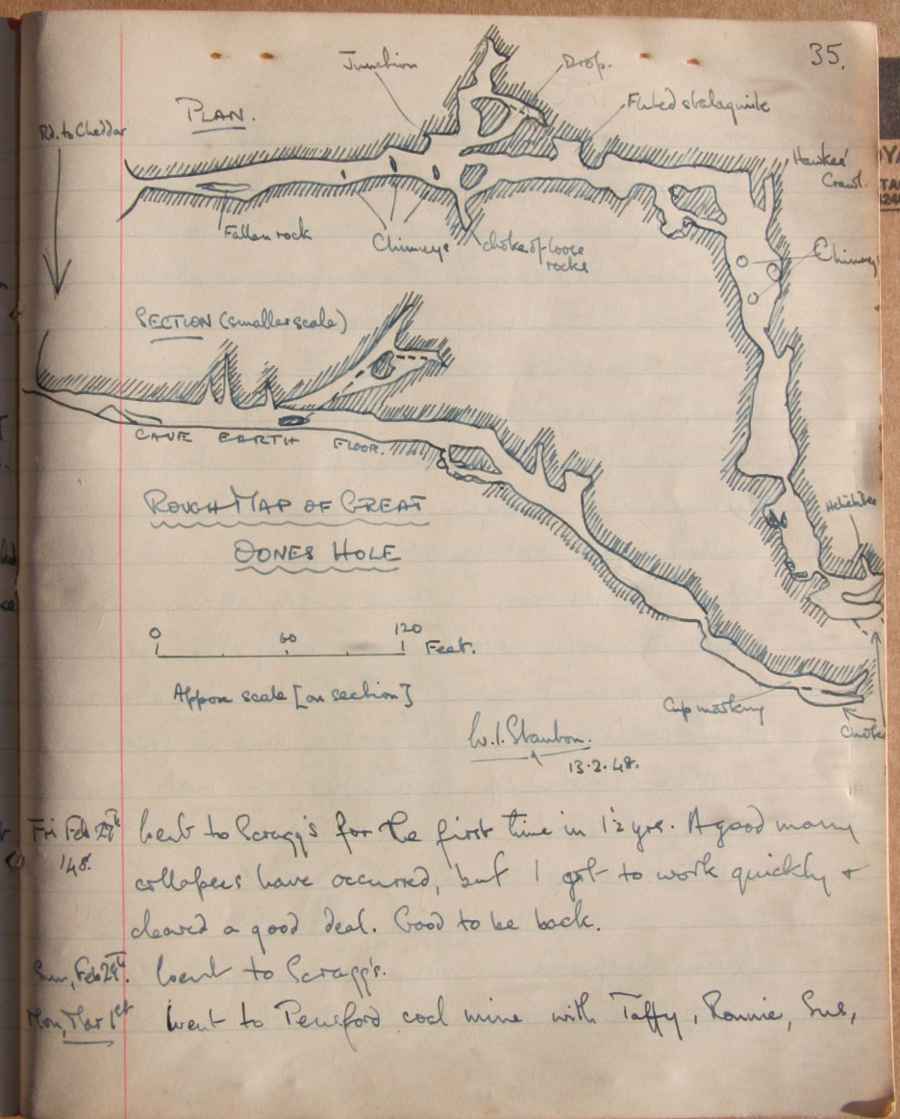 35.
Junction
Drop.
PLAN.
Fluted stalagmite
Rd. to Cheddar
Hawkes'
Crawl.
Fallen rock
Chimneys
choke of loose
rocks
Chimneys
SECTION (smaller scale)
CAVE EARTH FLOOR.
ROUGH MAP OF GREAT
OONES HOLE
Helictites
0 60 120 Feet.
Approx scale [on section]
Cup marking
Choke
W.I. Stanton.
13.2.48.
Fri Feb 27th Went to Scragg's for the first time in 1½ yrs. A good many
'48. collapses have occurred, but I got to work quickly &
cleared a good deal. Good to be back.
Sun, Feb 29th. Went to Scragg's.
Mon, Mar 1st Went to Pensford coal mine with Taffy, Ronnie, Sus,